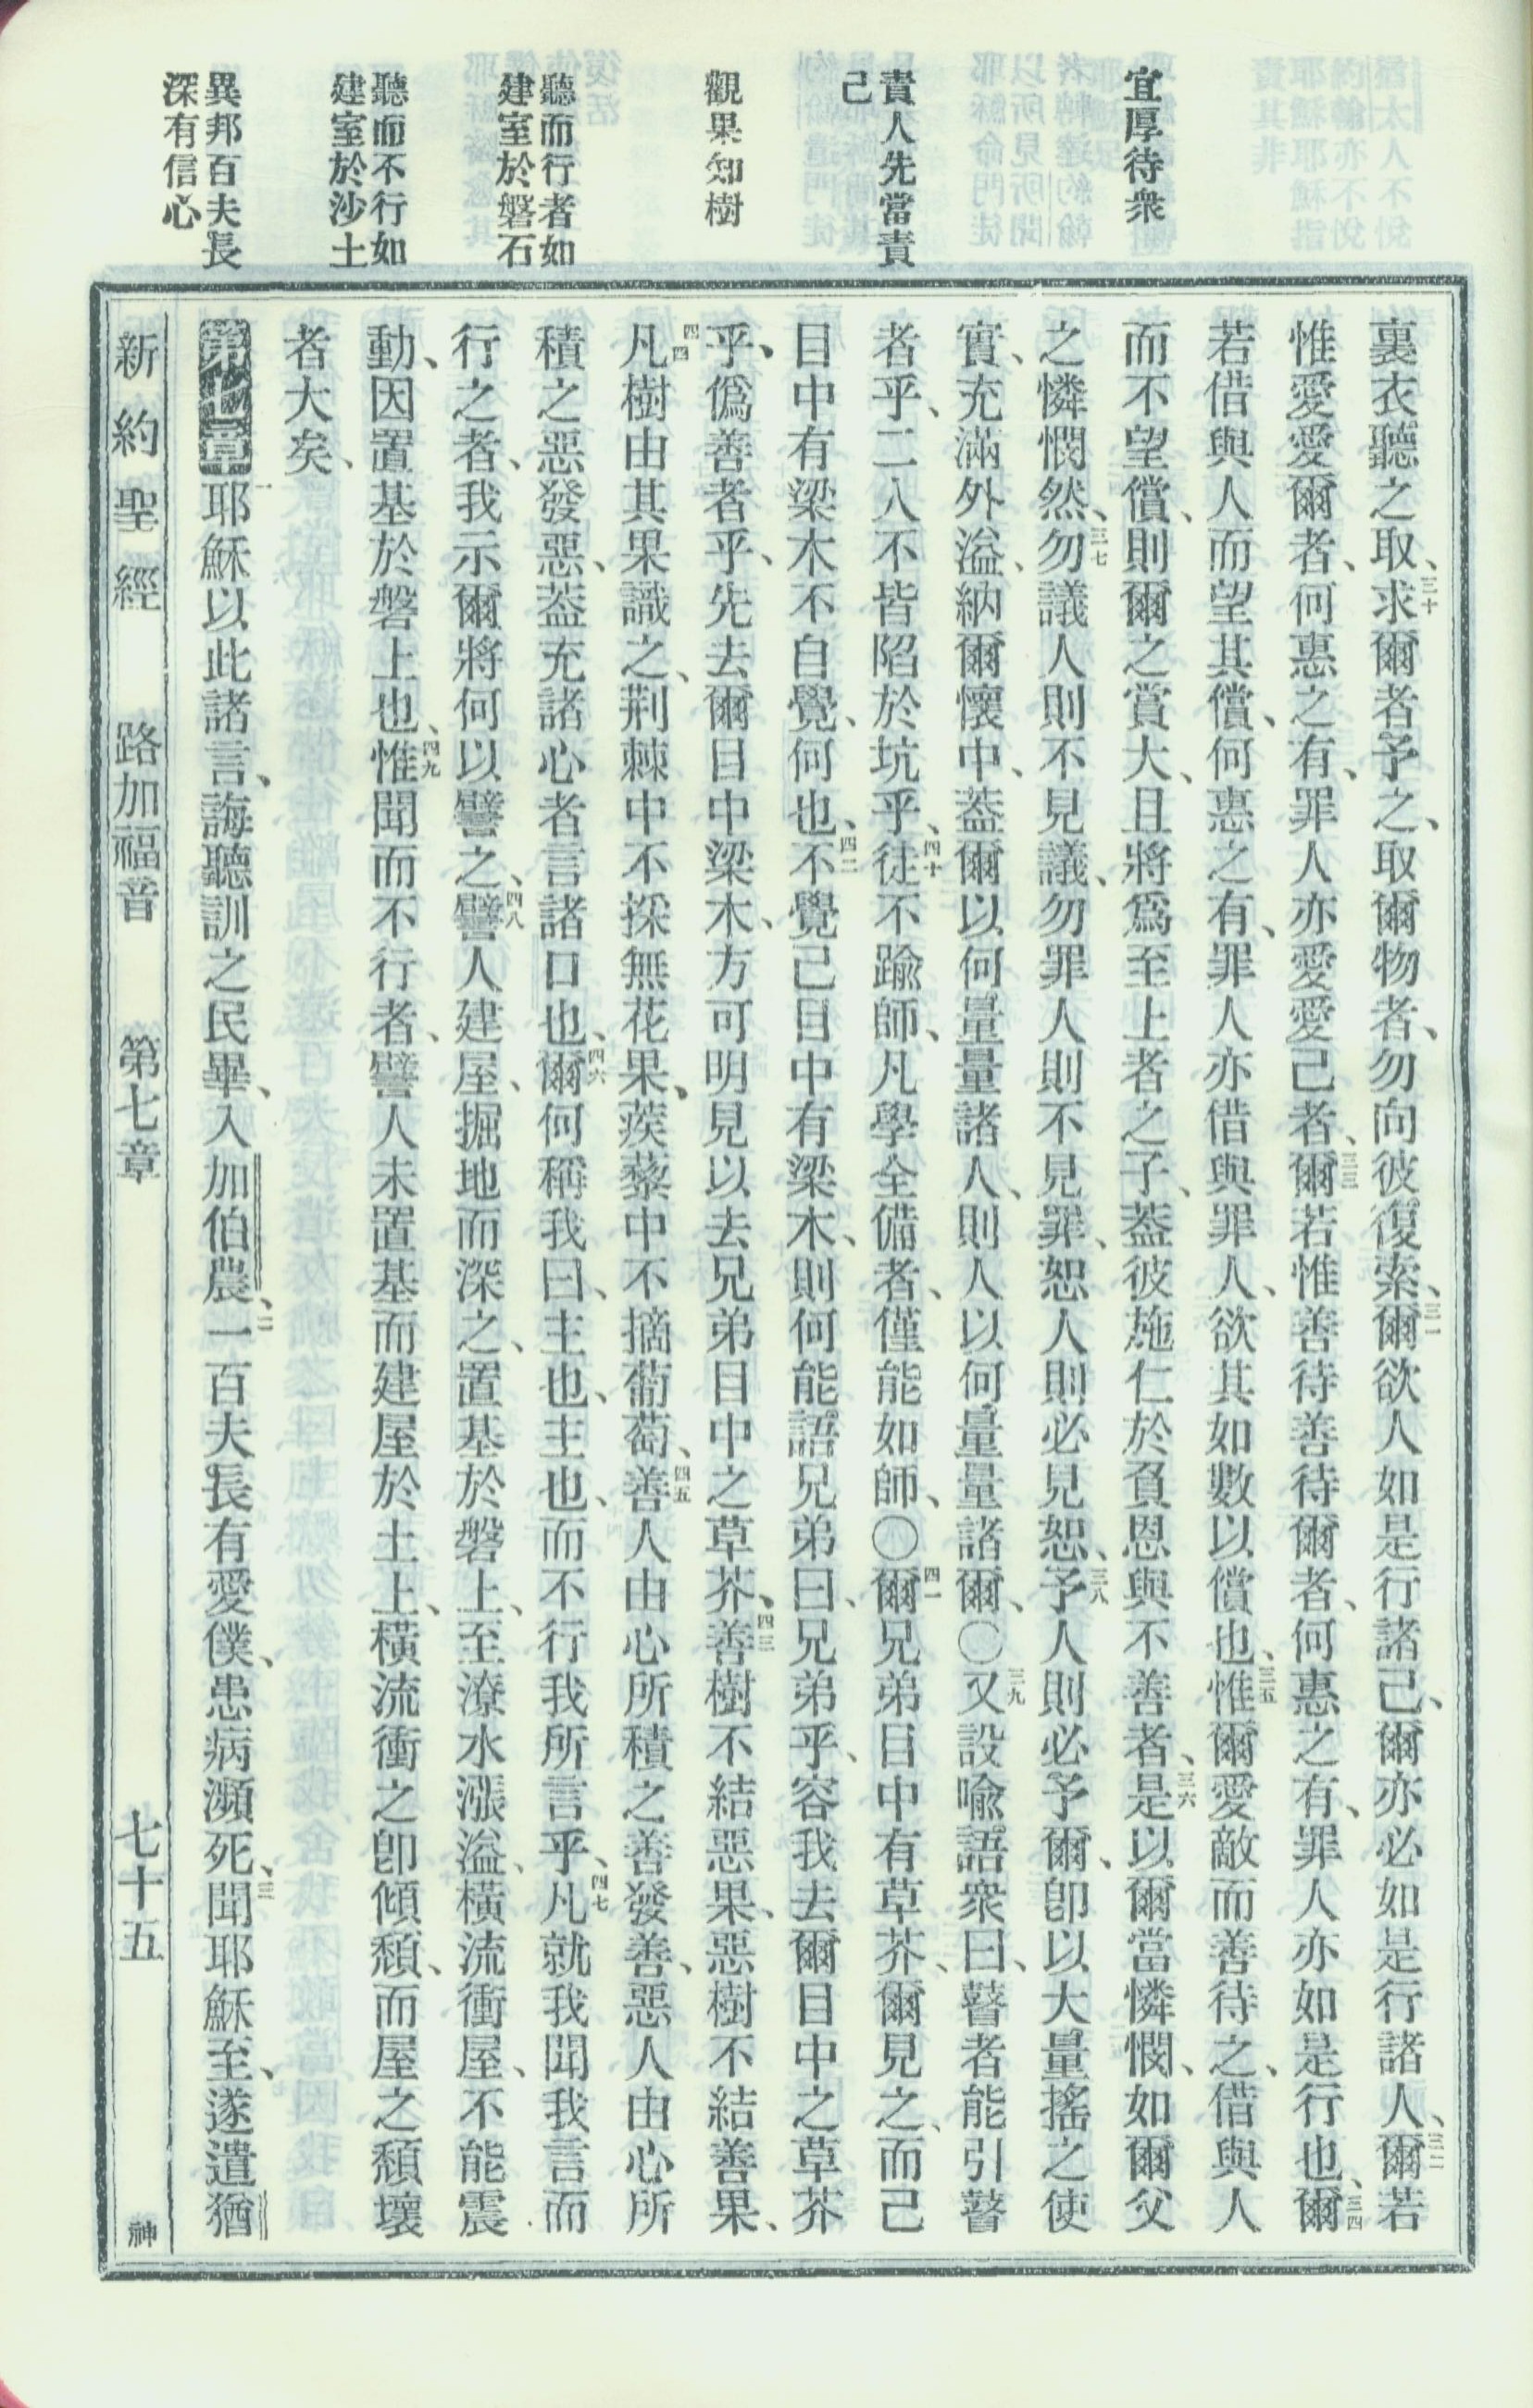 宜厚待衆
責人先當責
己
觀果知樹
聽而行者如
建室於磐石
聽而不行如
建室於沙土
異邦百夫長
深有信心
裏衣聽之取、三十求爾者予之、取爾物者、勿向彼復索、三一爾欲人如是行諸己、爾亦必如是行諸人、三二爾若
惟愛愛爾者、何惠之有、罪人亦愛愛己者、三三爾若惟善待善待爾者、何惠之有、罪人亦如是行也、三四爾
若借與人而望其償、何惠之有、罪人亦借與罪人、欲其如數以償也、三五惟爾愛敵而善待之、借與人
而不望償、則爾之賞大、且將爲至上者之子、葢彼施仁於負恩與不善者、三六是以爾當憐憫、如爾父
之憐憫然、三七勿議人則不見議、勿罪人則不見罪、恕人則必見恕、三八予人則必予爾、卽以大量搖之使
實、充滿外溢、納爾懷中、葢爾以何量量諸人、則人以何量量諸爾、〇三九又設喻語衆曰、瞽者能引瞽
者乎、二人不皆陷於坑乎、四十徒不踰師、凡學全備者、僅能如師、〇四一爾兄弟目中有草芥、爾見之、而己
目中有梁木不自覺、何也、四二不覺己目中有梁木、則何能語兄弟曰、兄弟乎、容我去爾目中之草芥
乎、僞善者乎、先去爾目中梁木、方可明見以去兄弟目中之草芥、四三善樹不結惡果、惡樹不結善果、
四四凡樹由其果識之、荆棘中不採無花果、蒺藜中不摘葡萄、四五善人由心所積之善發善、惡人由心所
積之惡發惡、葢充諸心者言諸口也、四六爾何稱我曰、主也、主也、而不行我所言乎、四七凡就我聞我言而
行之者、我示爾將何以譬之、四八譬人建屋、掘地而深之、置基於磐上、至潦水漲溢、橫流衝屋、不能震
動、因置基於磐上也、四九惟聞而不行者、譬人未置基而建屋於土上、橫流衝之卽傾頹、而屋之頹壞
者大矣、
第七章 一耶穌以此諸言、誨聽訓之民畢、入加伯農、二一百夫長有愛僕、患病瀕死、三聞耶穌至、遂遣猶
新約聖經 路加福音 第七章 七十五 神